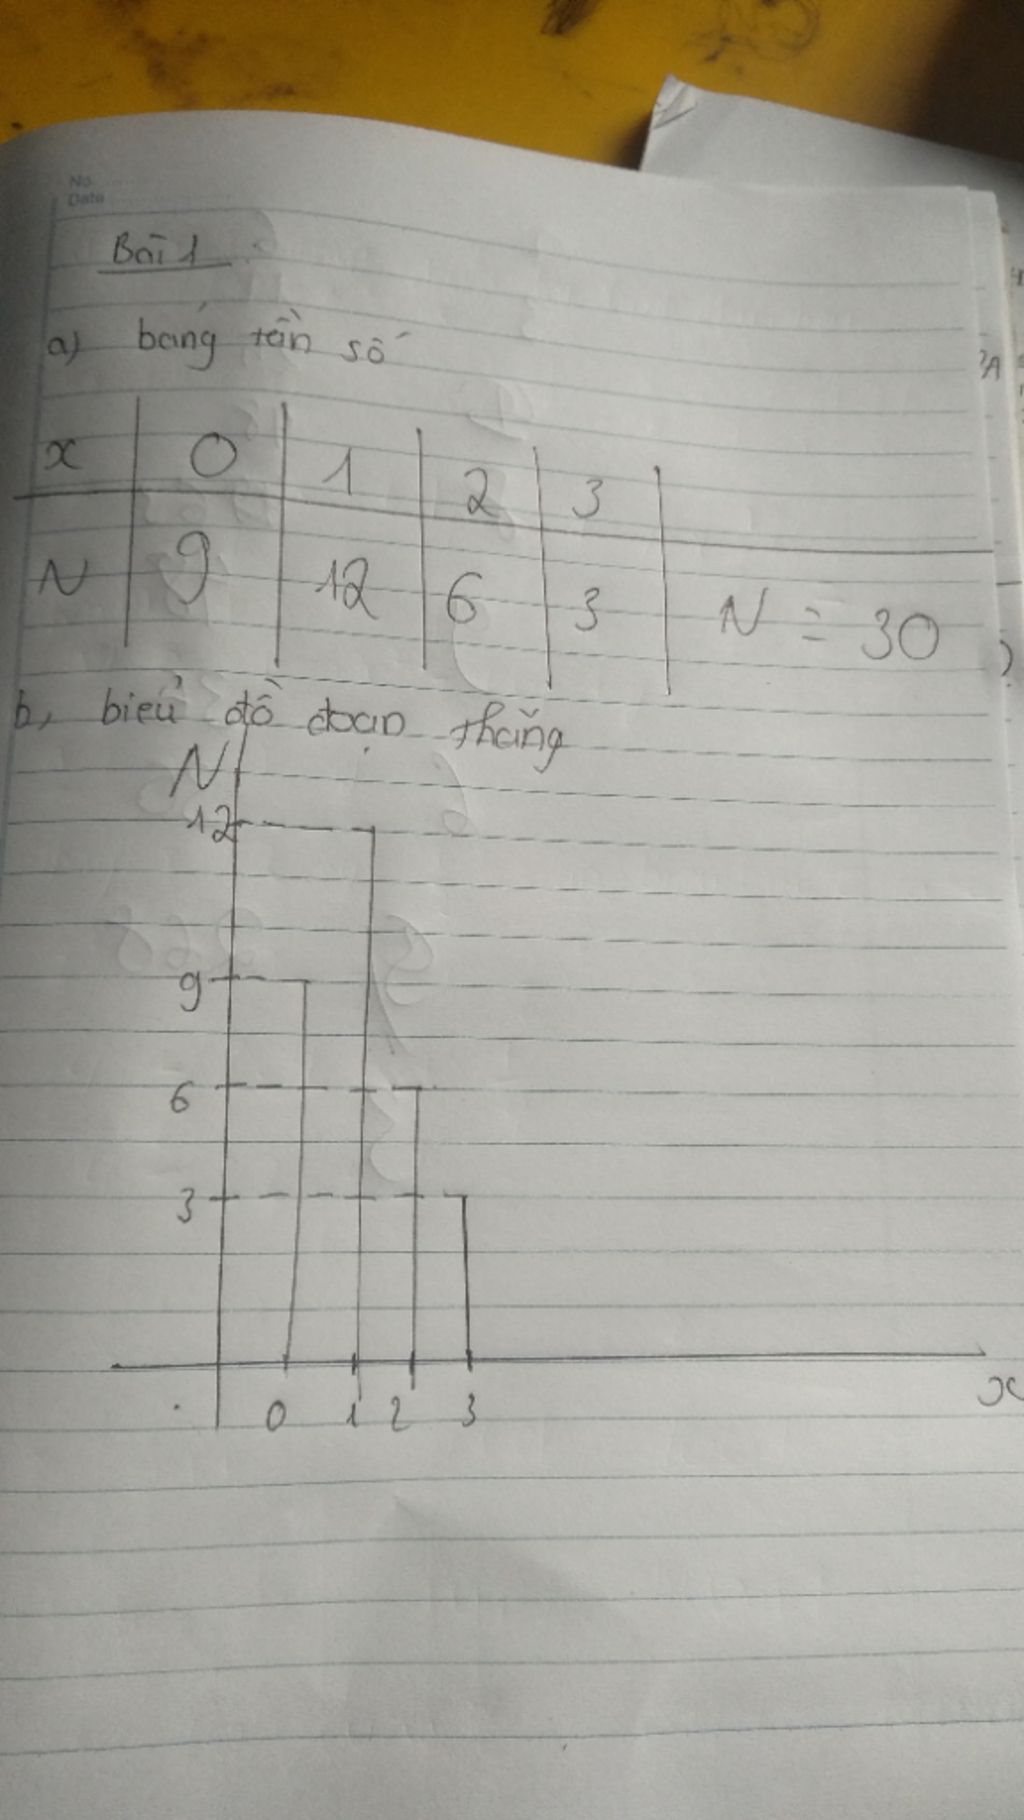 No.
Date
Bài 1
a) bảng tần số
x 0 1 2 3
N 9 12 6 3 N = 30
b, biểu đồ đoạn thẳng
N
12
9
6
3
0 1 2 3
x